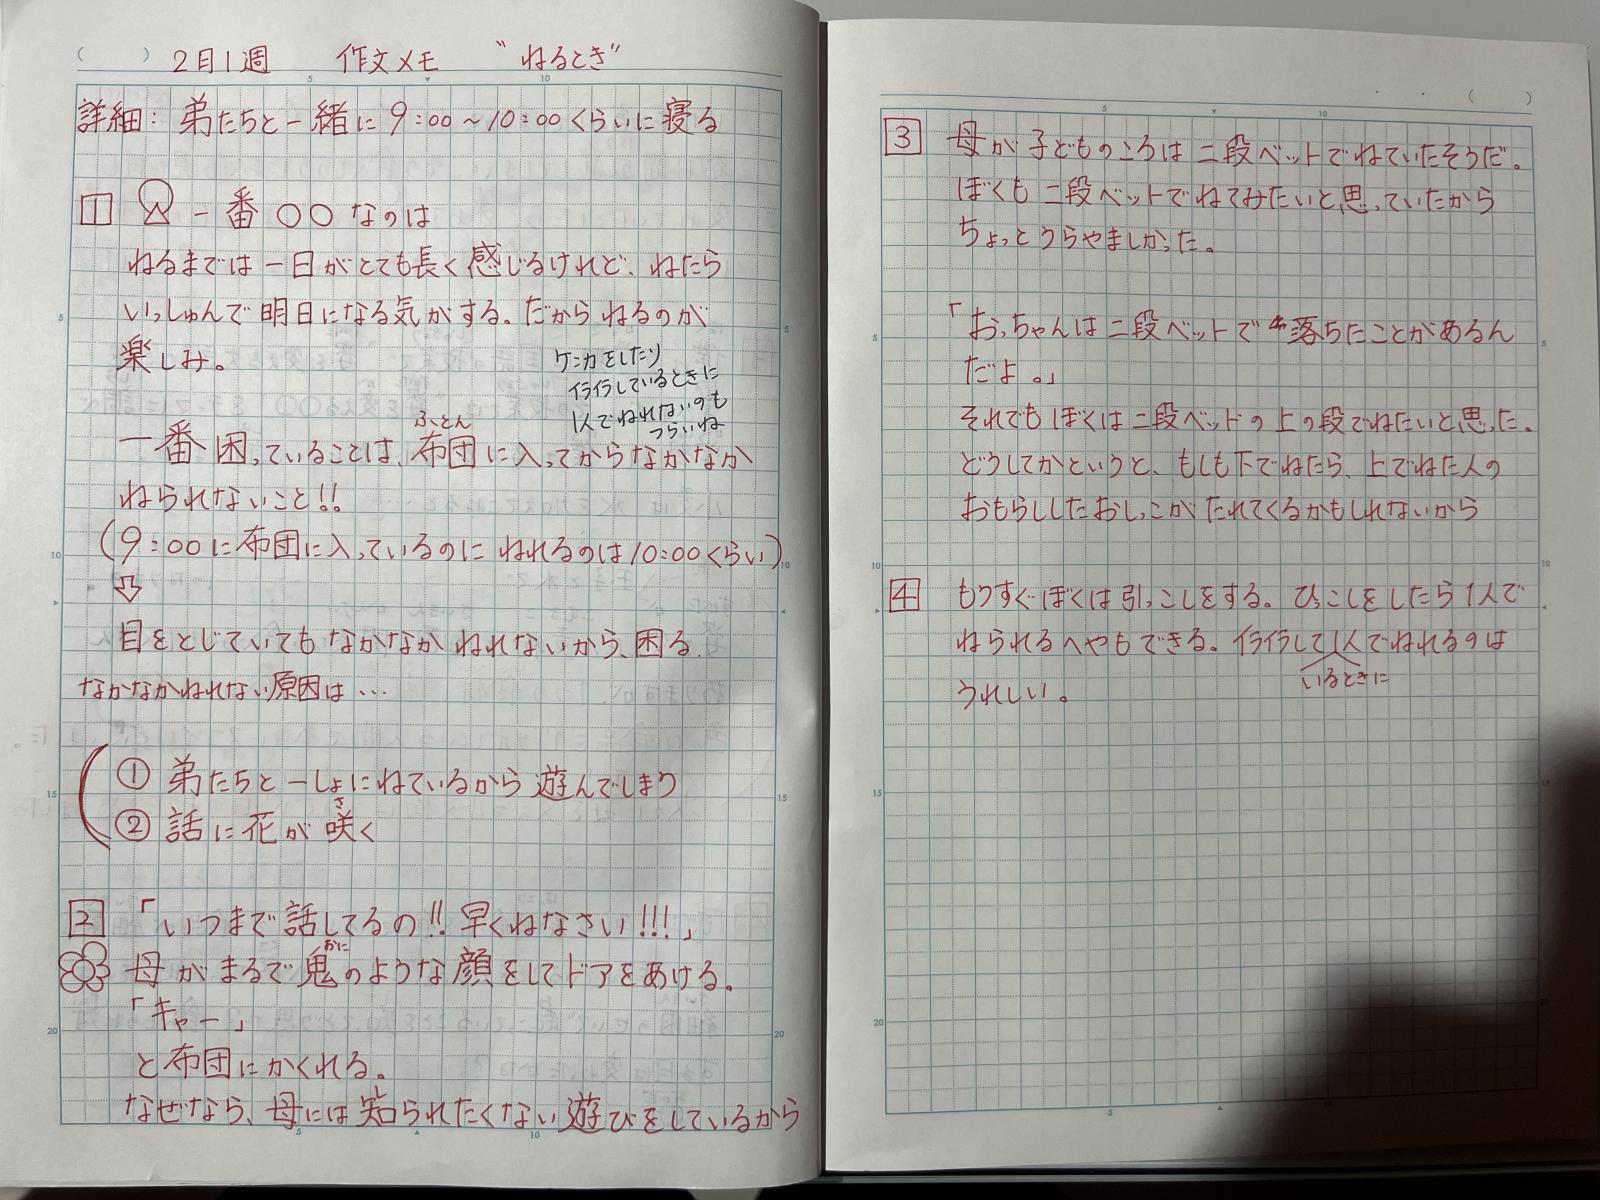 ( ) 2月1週 作文メモ "ねるとき"
詳細: 弟たちと一緒に9:00〜10:00くらいに寝る
1 一番〇〇なのは
ねるまでは一日がとても長く感じるけれど、ねたら
いっしゅんで明日になる気がする。だからねるのが
楽しみ。
ケンカをしたり
イライラしているときに
1人でねれないのも
つらいね
ふとん
一番困っていることは、布団に入ってからなかなか
ねられないこと!!
(9:00に布団に入っているのにねれるのは10:00くらい)
⇩
目をとじていてもなかなかねれないから、困る.
なかなかねれない原因は…
① 弟たちと一しょにねているから遊んでしまう
さ
② 話に花が咲く
2 「いつまで話してるの!!早くねなさい!!!」
おに
母がまるで鬼のような顔をしてドアをあける。
「キャー」
と布団にかくれる。
なぜなら、母には知られたくない遊びをしているから
( )
3 母が子どものころは二段ベットでねていたそうだ。
ぼくも二段ベットでねてみたいと思っていたから
ちょっとうらやましかった。
「おっちゃんは二段ベットで落ちたことがあるん
だよ。」
それでもぼくは二段ベットの上の段でねたいと思った。
どうしてかというと、もしも下でねたら、上でねた人の
おもらししたおしっこがたれてくるかもしれないから
4 もうすぐぼくは引っこしをする。ひっこしをしたら1人で
ねられるへやもできる。イライラして1人でねれるのは
いるときに
うれしい。